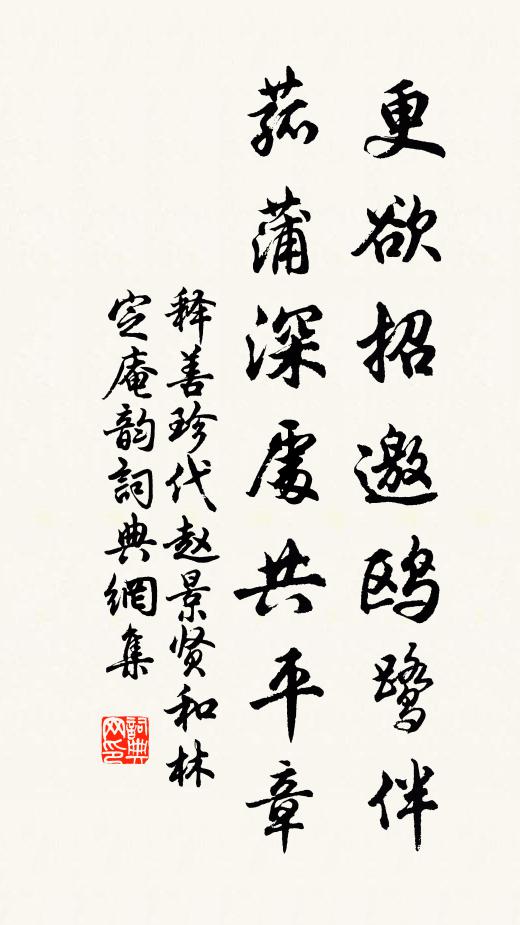 更欲招邀鸥鹭伴
菰蒲深處共平章
释善珍代赵景贤和林
定庵韵詞典網集
詞典网印